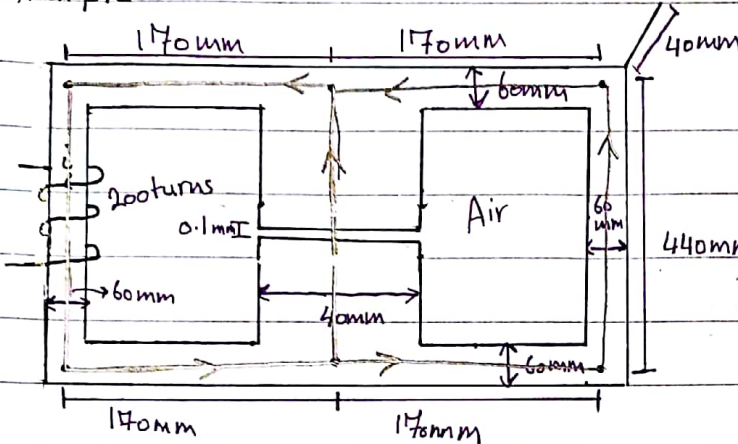 170mm 170mm
40mm
60mm
200turns
Air
0.1mm
60
mm
440mm
60mm
40mm
60mm
170mm 170mm